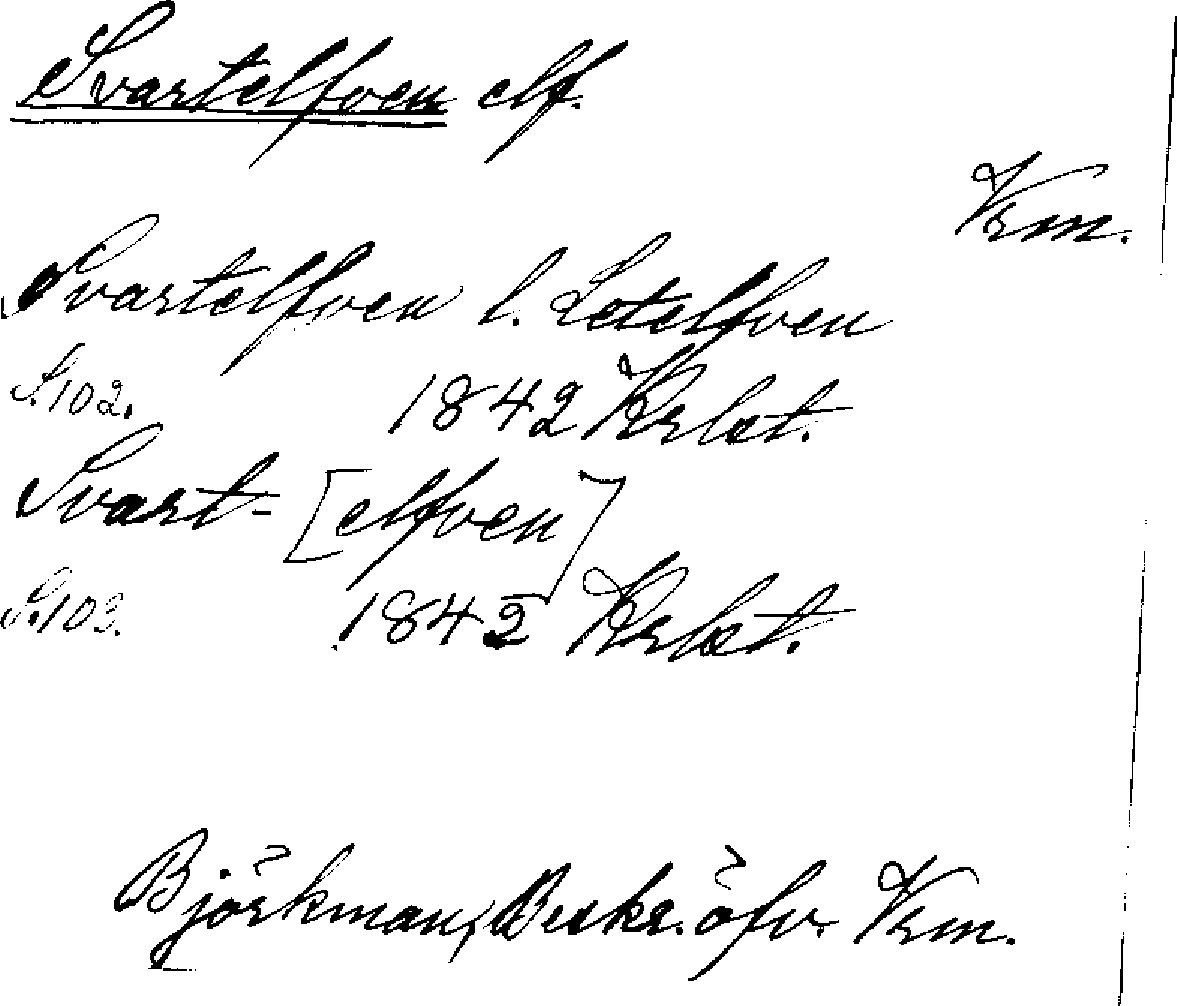 Svartelfven elf.
Vrm.
Svartelfven l. Letelfven
S. 102. 1842 Krlst.
Svart- [elfven]
S. 103. 1842 Krlst.
Björkman, Beskr. öfv. Vrm.